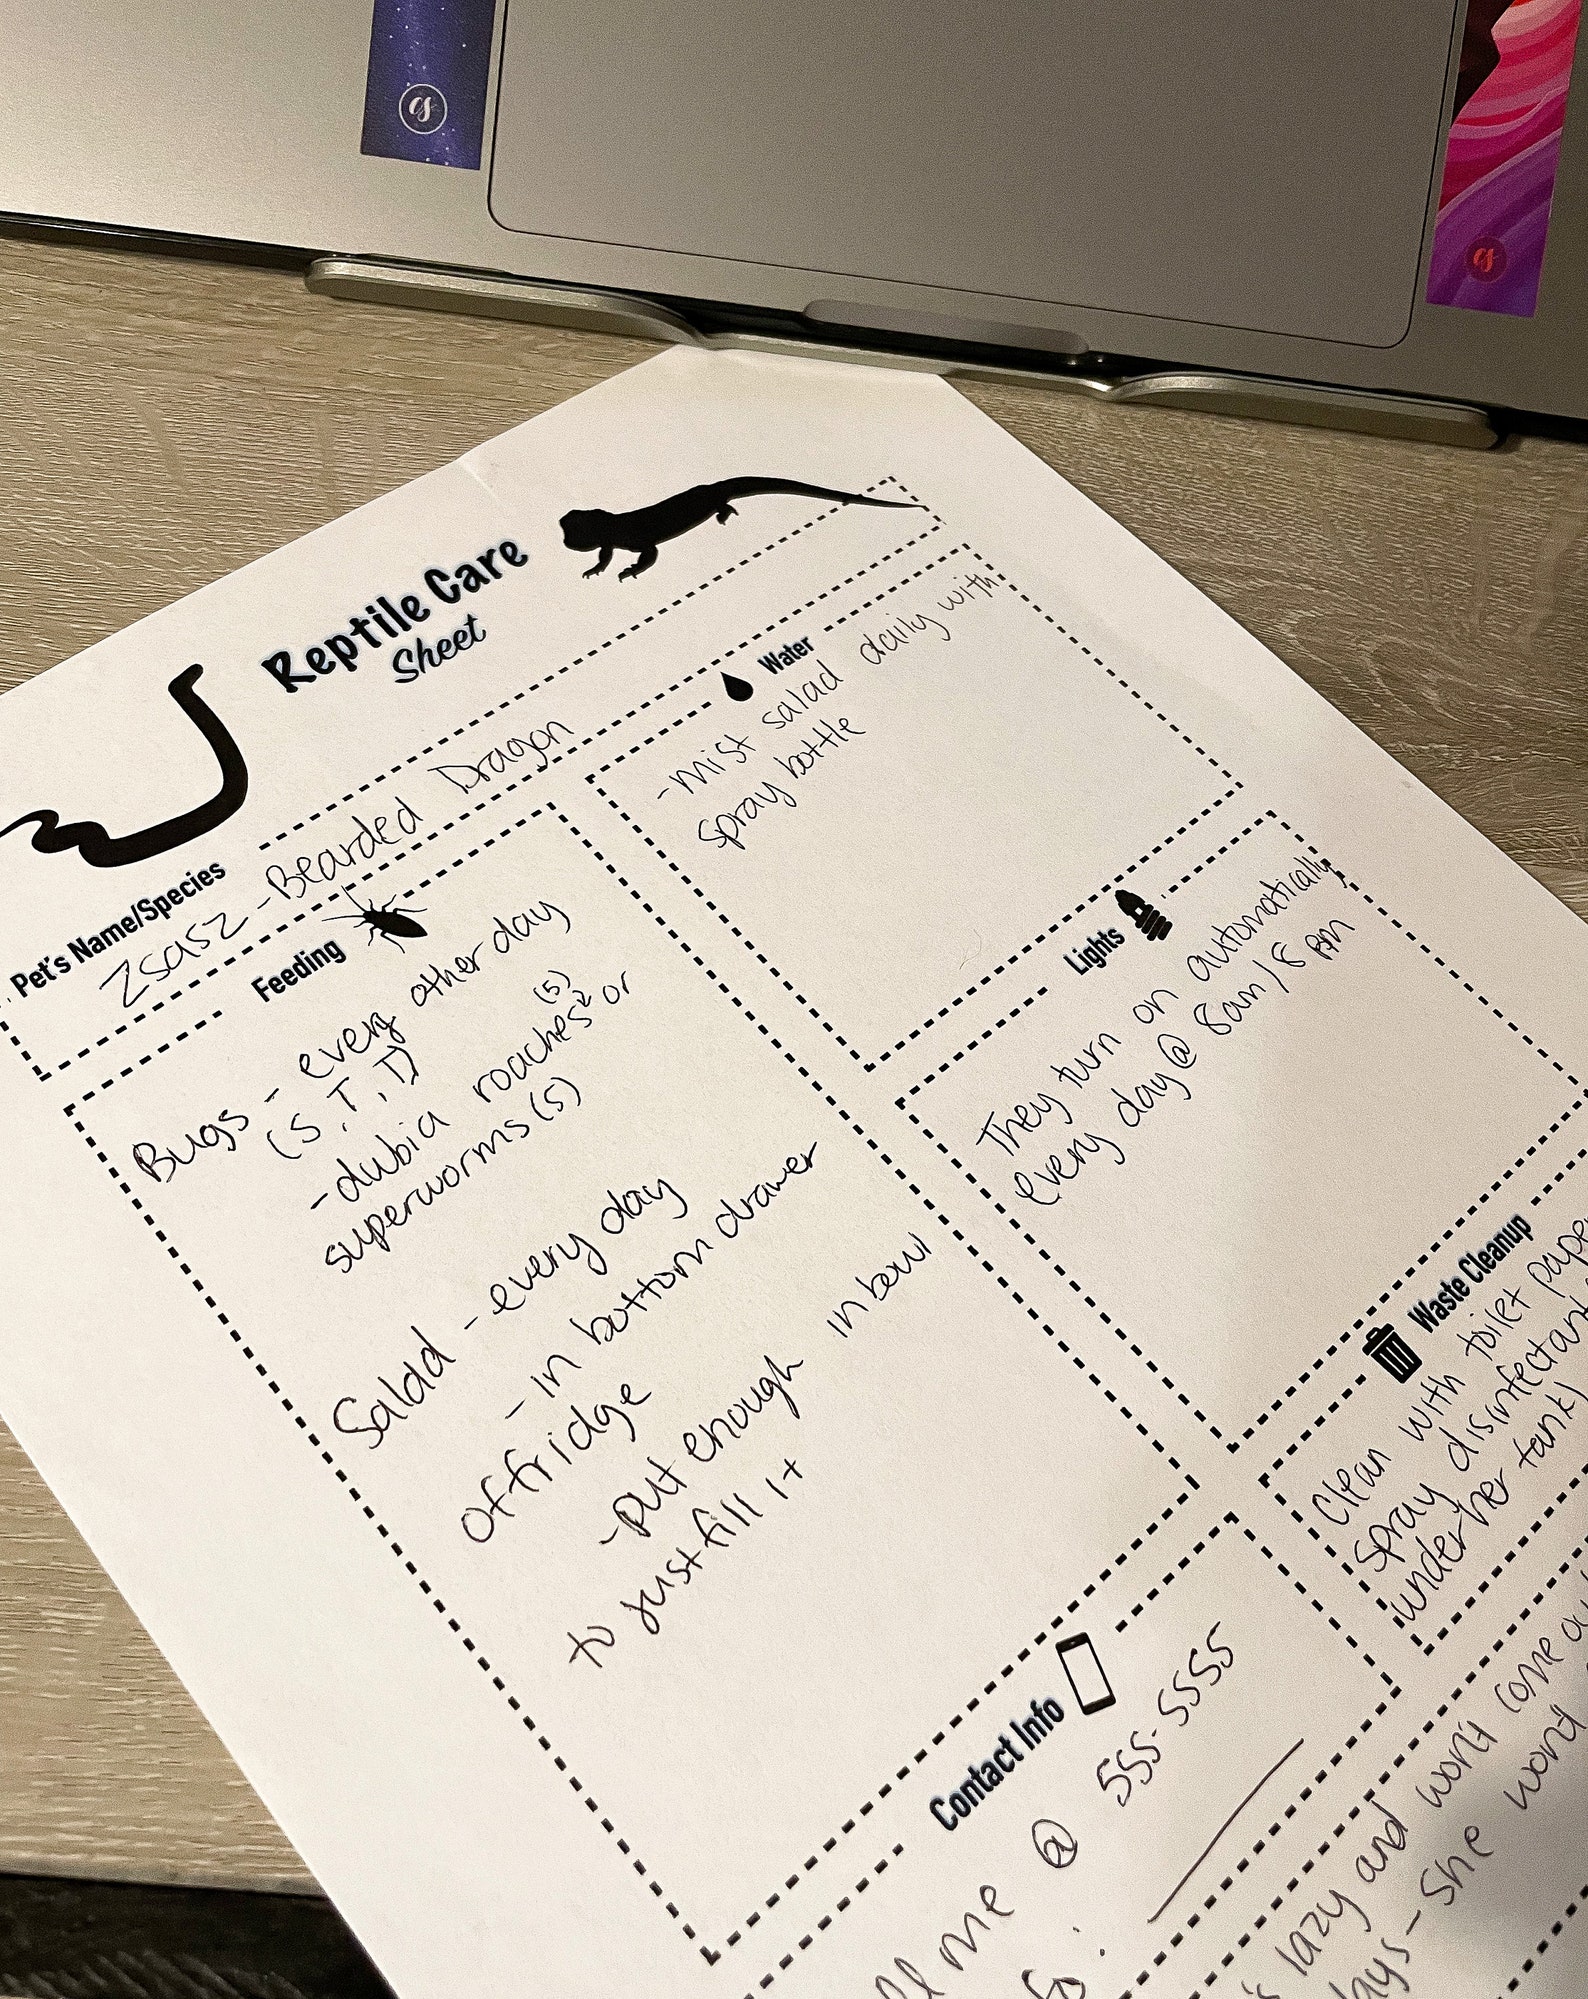 Reptile Care
Sheet
Pet's Name/Species
Zsasz - Bearded Dragon
Feeding
Bugs - every other day
(S, T, T)
- dubia roaches (5) or
superworms (5)
Salad - every day
- in bottom drawer
of fridge
- put enough in bowl
to just fill it
Water
- mist salad daily with
spray bottle
Lights
They turn on automatically
every day @ 8am / 8 pm
Waste Cleanup
Clean with toilet paper
spray disinfectant
under her tank)
Contact Info
me @ 555-5555
lazy and won't come
- she won't
cs
cs